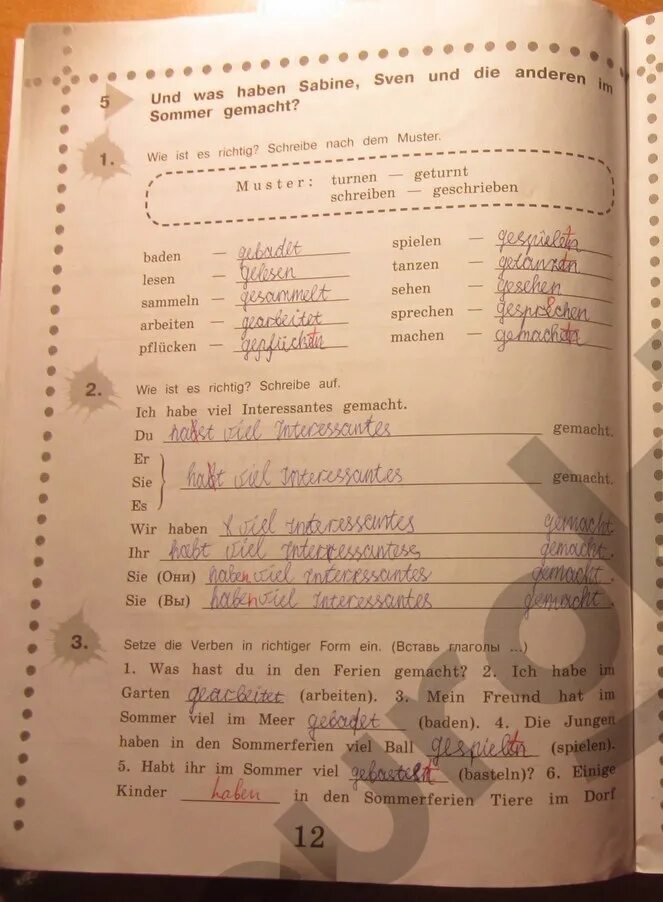 5 Und was haben Sabine, Sven und die anderen im
Sommer gemacht?
1. Wie ist es richtig? Schreibe nach dem Muster.
Muster: turnen — geturnt
schreiben — geschrieben
baden — gebadet
lesen — gelesen
sammeln — gesammelt
arbeiten — gearbeitet
pflücken —
spielen —
tanzen —
sehen — gesehen
sprechen —
machen —
2. Wie ist es richtig? Schreibe auf.
Ich habe viel Interessantes gemacht.
Du viel Interessantes gemacht.
Er
Sie viel Interessantes gemacht.
Es
Wir haben viel Interessantes gemacht.
Ihr habt viel gemacht.
Sie (Они) haben viel Interessantes gemacht.
Sie (Вы) haben viel Interessantes gemacht.
3. Setze die Verben in richtiger Form ein. (Вставь глаголы ...)
1. Was hast du in den Ferien gemacht? 2. Ich habe im
Garten gearbeitet (arbeiten). 3. Mein Freund hat im
Sommer viel im Meer gebadet (baden). 4. Die Jungen
haben in den Sommerferien viel Ball (spielen).
5. Habt ihr im Sommer viel (basteln)? 6. Einige
Kinder haben in den Sommerferien Tiere im Dorf
12